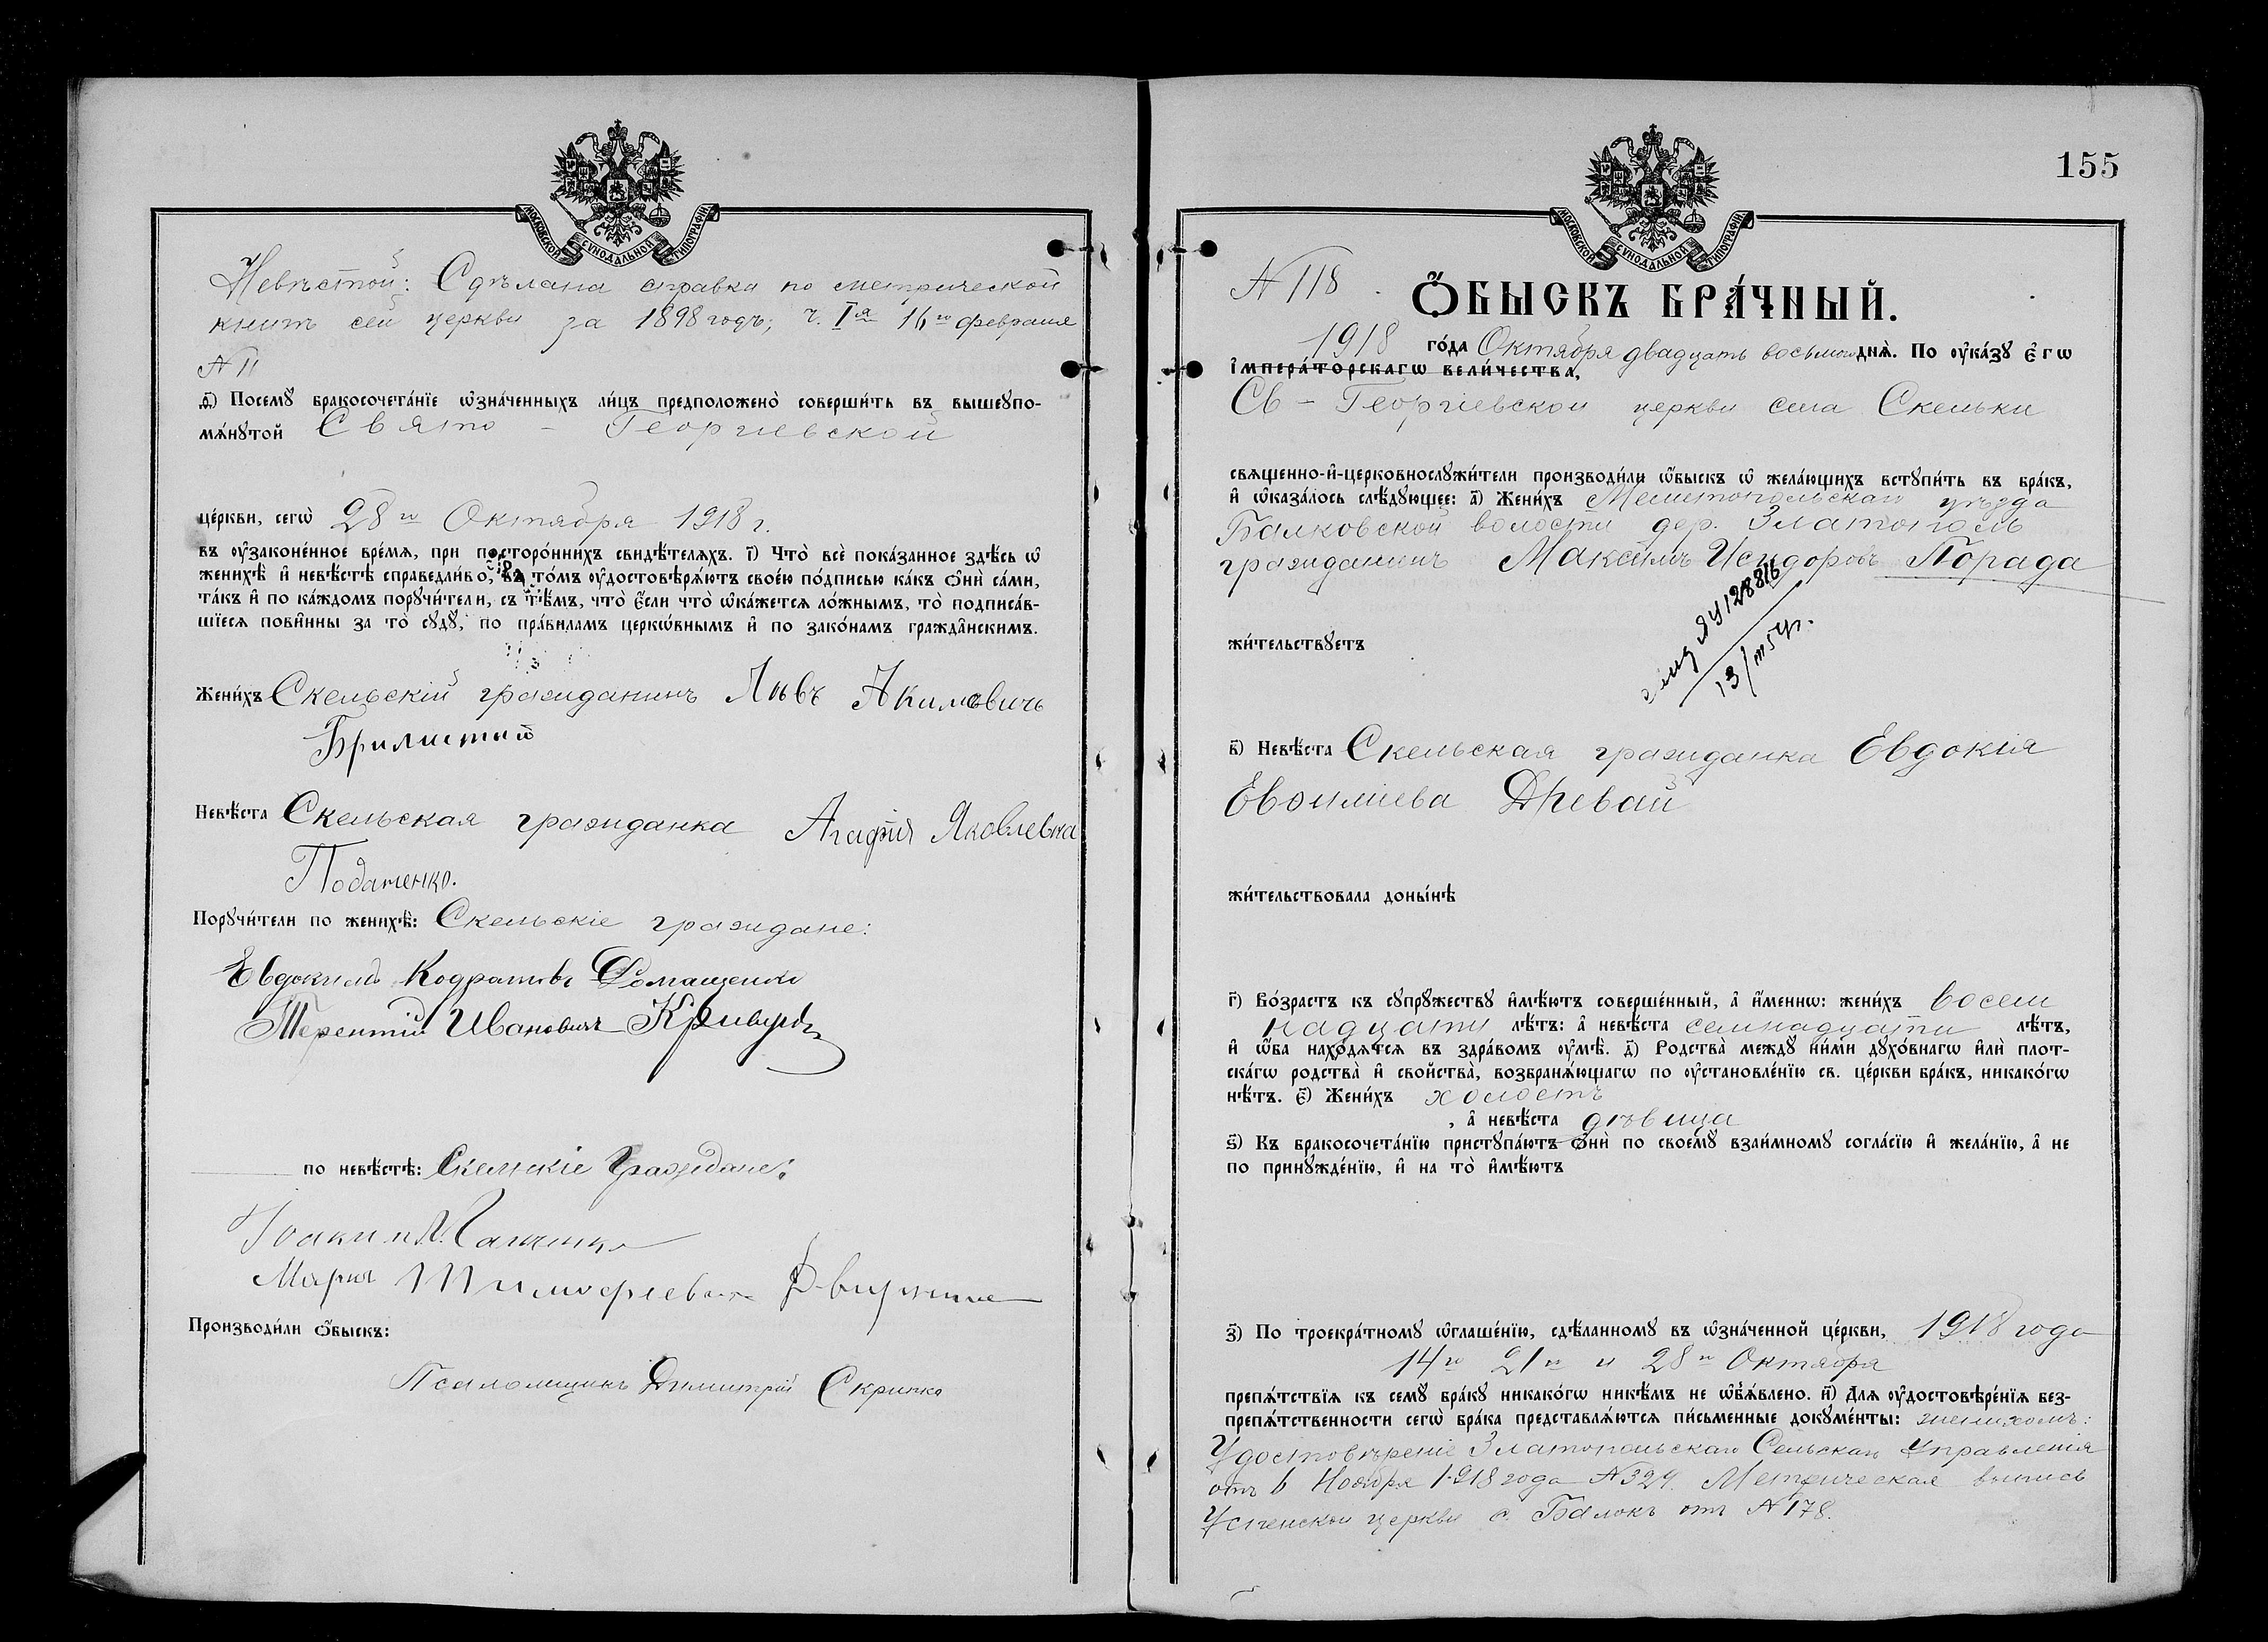 МОСКОВСКОЙ СѴНОДАЛЬНОЙ ТИПОГРАФІИ
Невѣстой: Сдѣлана справка по метрической
книгѣ сей церкви за 1898 годъ; ч. Iя 16го февраля
№ 11
ѳ҃) Посемꙋ̀ бракосочета́нїе ѡ҆зна́ченныхъ ли́цъ предположено̀ соверши́ть въ вышеꙋпо-
мѧ́нꙋтой Свято - Георгіевской
це́ркви, сегѡ̀ 28го Октября 1918 г.
въ ᲂу҆законе́нное вре́мѧ, при посторо́ннихъ свидѣ́телѧхъ. і҃) Что̀ всѐ пока́занное здѣ́сь ѡ҆
женихѣ̀ и҆ невѣ́стѣ справедли́во, въ то́мъ ᲂу҆достовѣрѧ́ютъ свое́ю по́дписью ка́къ ѻ҆нѝ са́ми,
та́къ и҆ по ка́ждомъ порꙋчи́тели, съ тѣ́мъ, что̀ є҆́сли что̀ ѡ҆ка́жетсѧ ло́жнымъ, то̀ подписа́в-
шїесѧ пови́нны за то̀ сꙋдꙋ̀, по пра́виламъ церкѡ́внымъ и҆ по зако́намъ гражда̂нскимъ.
Жени́хъ Скельскій гражданинъ Львъ Акимовичъ
Брилистый
Невѣ́ста Скельская гражданка Агафія Яковлевна
Податенко.
Порꙋчи́тели по женихѣ̀: Скельскіе граждане:
Евдокимъ Кодратовъ Домащенко
Терентій Ивановичъ
по невѣ́стѣ: Скельскіе Граждане:
Іоакимъ
Марія Тимофѣева
Производи́ли ѻ҆́быскъ:
Псаломщикъ Димитрій Скрипка
155
МОСКОВСКОЙ СѴНОДАЛЬНОЙ ТИПОГРАФІИ
№ 118
Ѻ҆́БЫСКЪ БРА́ЧНЫЙ.
1918 го́да Октября двадцать восьмого днѧ̀. По ᲂу҆ка́зꙋ є҆гѡ̀
і҆мпера́торскагѡ вели́чества,
Св - Георгіевской церкви села Скельки
свѧщенно-и҆-церковнослꙋжи́тели производи́ли ѡ҆́быскъ ѡ҆ жела́ющихъ встꙋпи́ть въ бра́къ,
и҆ ѡ҆каза́лось слѣ́дꙋющее: а҃) Жени́хъ Мелитопольскаго уѣзда
Балковской волости дер. Златополь
гражданинъ Максимъ Исидоровъ Порада
жи́тельствꙋетъ
128816
13/III 57г.
в҃) Невѣ́ста Скельская гражданка Евдокія
Евфиміева Древай
жи́тельствовала доны́нѣ
г҃) Во́зрастъ къ сꙋпрꙋ́жествꙋ и҆мѣ́ютъ соверше́нный, а҆ и҆́меннѡ: жени́хъ восем
надцати лѣ́тъ: а҆ невѣ́ста семнадцати лѣ́тъ,
и҆ ѻ҆́ба нахо́дѧтсѧ въ здра́вомъ ᲂу҆мѣ̀. д҃) Родства̀ междꙋ̀ ни́ми дꙋхо́внагѡ и҆лѝ плот-
ска́гѡ родства̀ и҆ сво́йства, возбранѧ́ющагѡ по ᲂу҆становле́нїю св. це́ркви бра́къ, никако́гѡ
нѣ́тъ. є҃) Жени́хъ холостъ
, а҆ невѣ́ста дѣвица
ѕ҃) Къ бракосочета́нїю пристꙋпа́ютъ ѻ҆нѝ по своемꙋ̀ взаи́мномꙋ согла́сїю и҆ жела́нїю, а҆ не
по принꙋжде́нїю, и҆ на то̀ и҆мѣ́ютъ
з҃) По троекра́тномꙋ ѡ҆глаше́нїю, сдѣ́ланномꙋ въ ѡ҆зна́ченной це́ркви, 1918 года
14го 21го и 28го Октября
препѧ́тствїѧ къ семꙋ̀ бра́кꙋ никако́гѡ никѣ́мъ не ѡ҆б̾ѧ́влено. и҃) Длѧ ᲂу҆достовѣре́нїѧ без-
препѧ́тственности сегѡ̀ бра́ка представлѧ́ютсѧ пи́сьменные докꙋме́нты: женихомъ:
Удостовѣреніе Златопольскаго Сельскаго Управленія
отъ 6 Ноября 1918 года № 329. Метрическая выпись
Успенской церкви с. Балокъ отъ № 178.